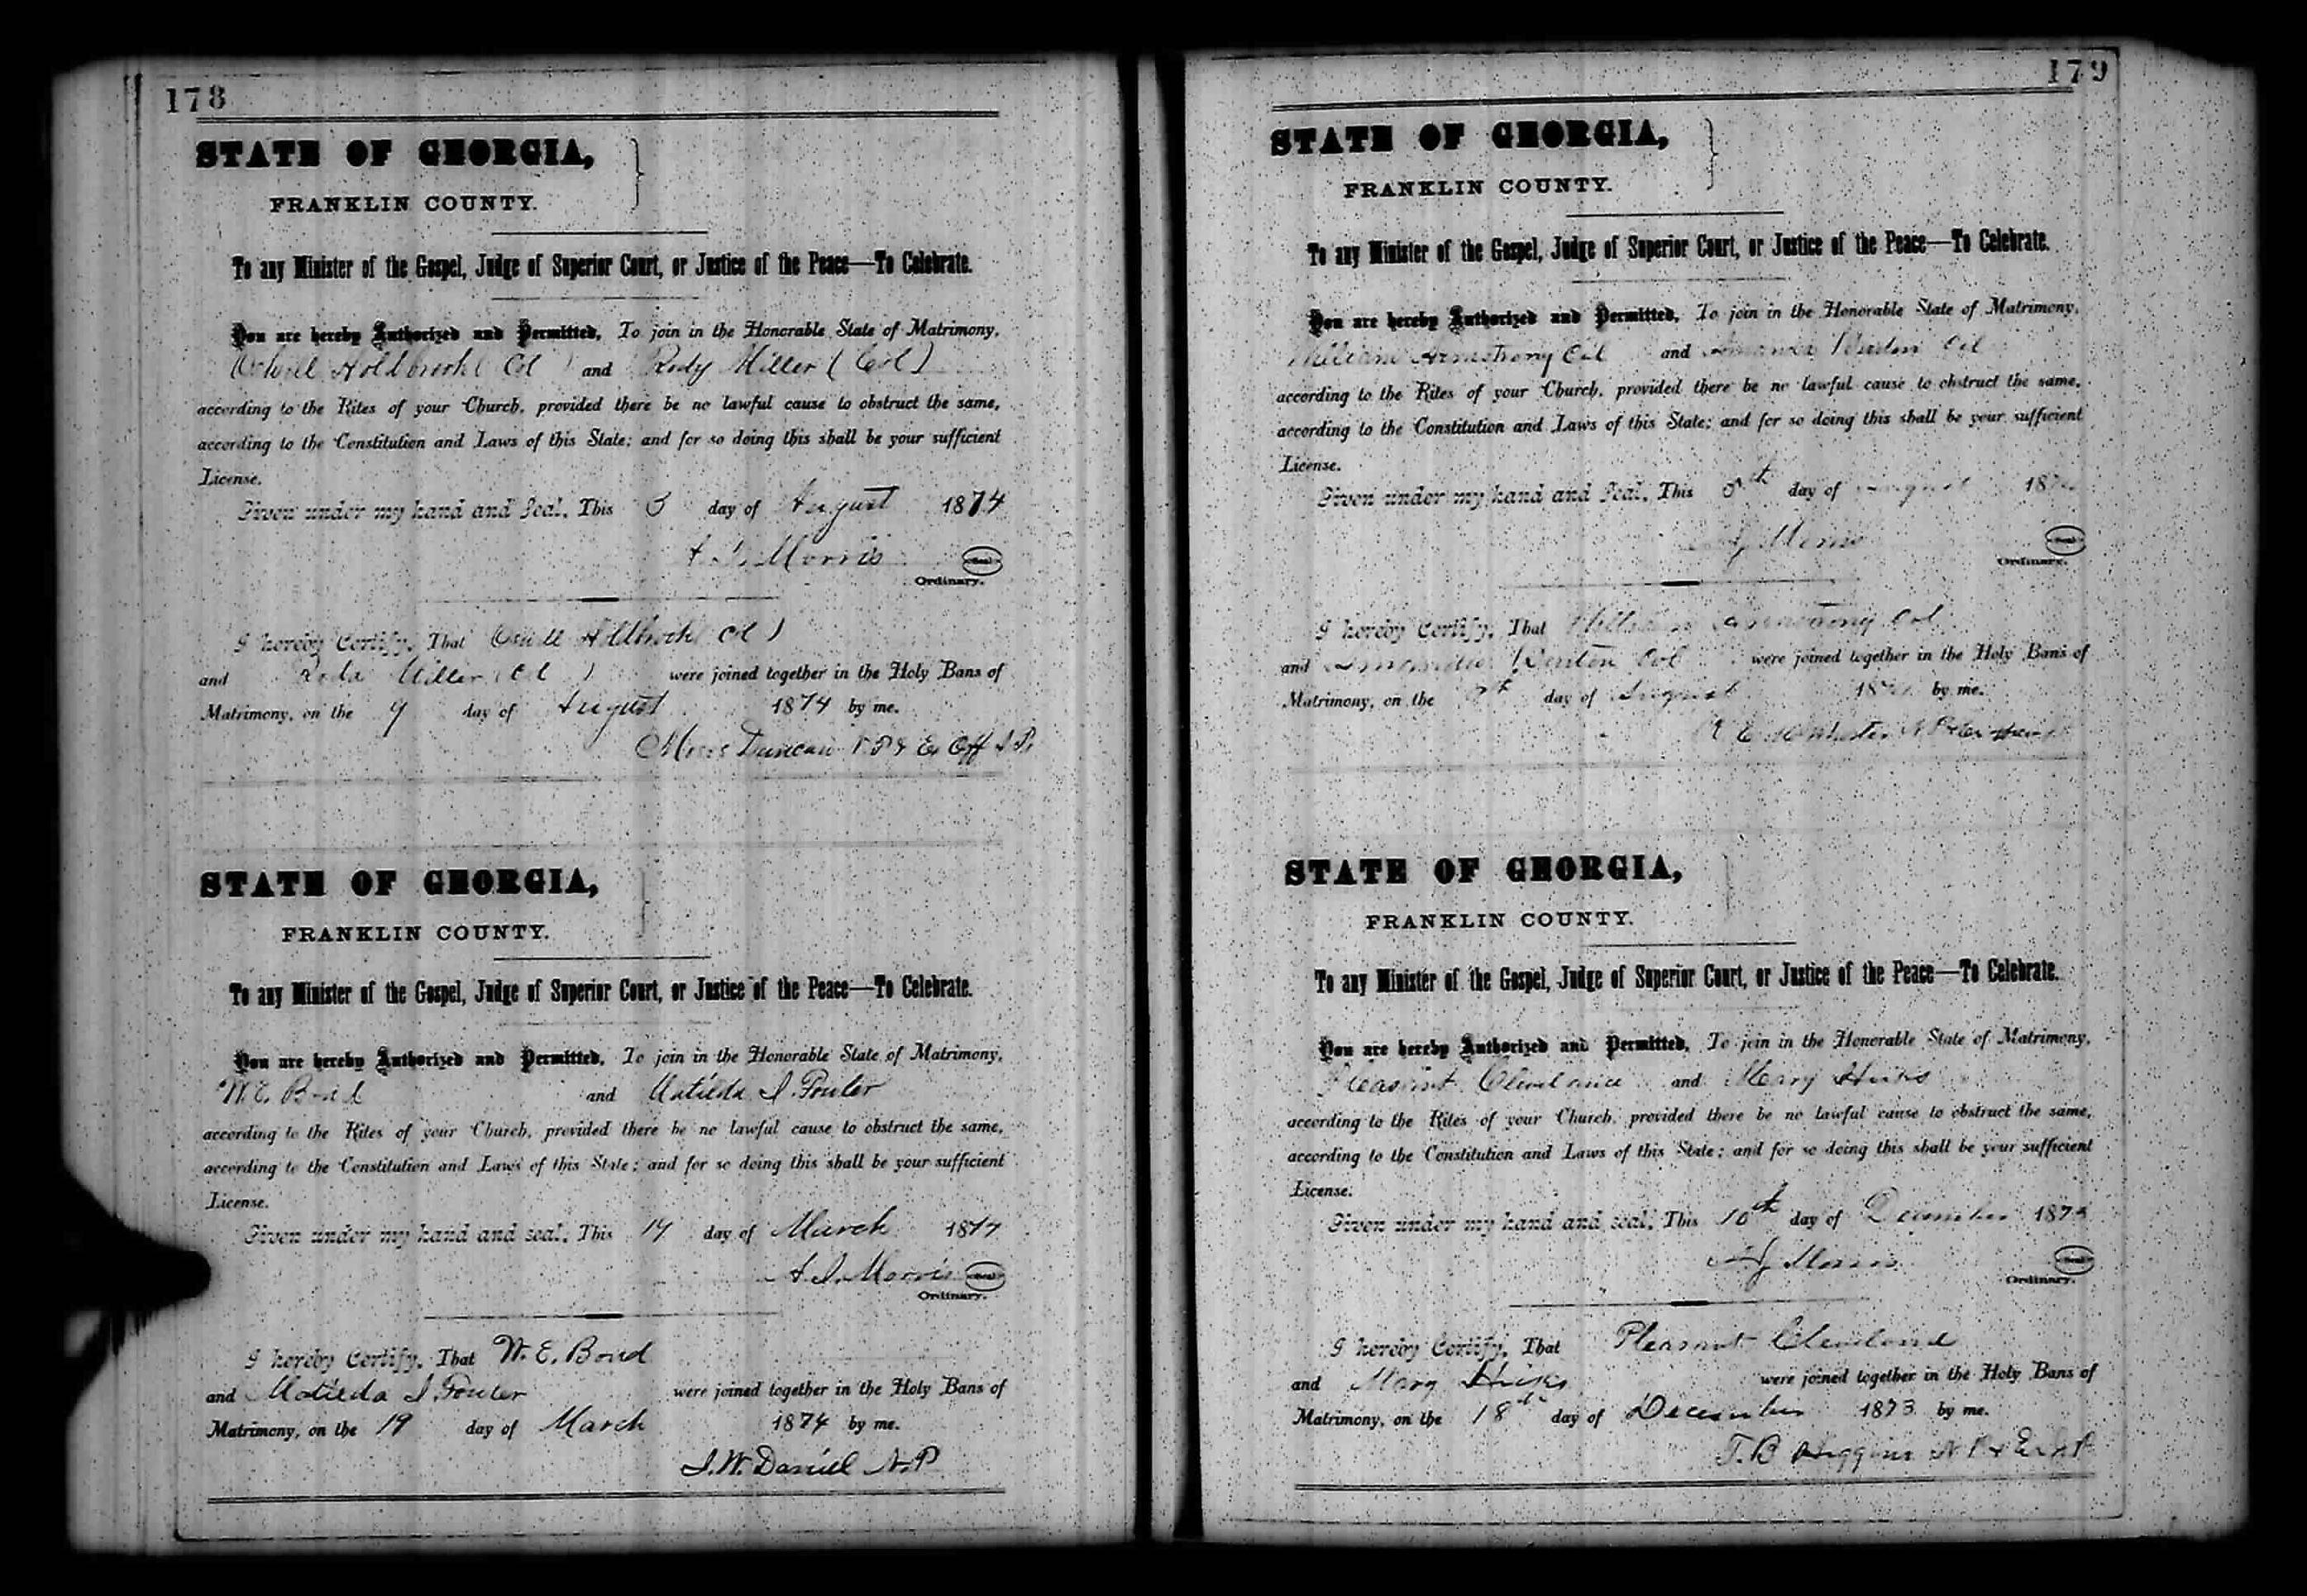 178
STATE OF GEORGIA,
FRANKLIN COUNTY.
To any Minister of the Gospel, Judge of Superior Court, or Justice of the Peace—To Celebrate.
You are hereby Authorized and Permitted, To join in the Honorable State of Matrimony,
Holdbrook (Col) and Rody Miller (Col)
according to the Rites of your Church, provided there be no lawful cause to obstruct the same,
according to the Constitution and Laws of this State; and for so doing this shall be your sufficient
License.
Given under my hand and Seal, This day of August 1874
A. J. Morris Seal
Ordinary.
I hereby Certify, That Holdbrook (Col)
and Roda Miller (Col) were joined together in the Holy Bans of
Matrimony, on the 9 day of August 1874 by me.
Moses Duncan N P & Ex Off J P.
STATE OF GEORGIA,
FRANKLIN COUNTY.
To any Minister of the Gospel, Judge of Superior Court, or Justice of the Peace—To Celebrate.
You are hereby Authorized and Permitted, To join in the Honorable State of Matrimony,
W. E. Bond and Matilda J. Fowler
according to the Rites of your Church, provided there be no lawful cause to obstruct the same,
according to the Constitution and Laws of this State; and for so doing this shall be your sufficient
License.
Given under my hand and seal, This day of March 1874
A. J. Morris Seal
Ordinary.
I hereby Certify, That W. E. Bond
and Matilda J. Fowler were joined together in the Holy Bans of
Matrimony, on the 19 day of March 1874 by me.
J. W. Daniel N. P
179
STATE OF GEORGIA,
FRANKLIN COUNTY.
To any Minister of the Gospel, Judge of Superior Court, or Justice of the Peace—To Celebrate.
You are hereby Authorized and Permitted, To join in the Honorable State of Matrimony,
William Armstrong Col and Amanda Col
according to the Rites of your Church, provided there be no lawful cause to obstruct the same,
according to the Constitution and Laws of this State; and for so doing this shall be your sufficient
License.
Given under my hand and Seal, This day of August 187
A J Morris Seal
Ordinary.
I hereby Certify, That William Armstrong Col
and Amanda Col were joined together in the Holy Bans of
Matrimony, on the day of August 187 by me.
STATE OF GEORGIA,
FRANKLIN COUNTY.
To any Minister of the Gospel, Judge of Superior Court, or Justice of the Peace—To Celebrate.
You are hereby Authorized and Permitted, To join in the Honorable State of Matrimony,
Pleasant Cleveland and Mary Hicks
according to the Rites of your Church, provided there be no lawful cause to obstruct the same,
according to the Constitution and Laws of this State; and for so doing this shall be your sufficient
License.
Given under my hand and seal, This 10th day of December 1873
A J Morris Seal
Ordinary.
I hereby Certify, That Pleasant Cleveland
and Mary Hicks were joined together in the Holy Bans of
Matrimony, on the 18th day of December 1873 by me.
T. B Higgins N P &